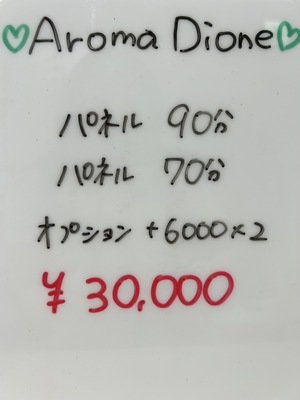 ♡Aroma Dione♡
パネル 90分
パネル 70分
オプション +6000×2
¥30,000